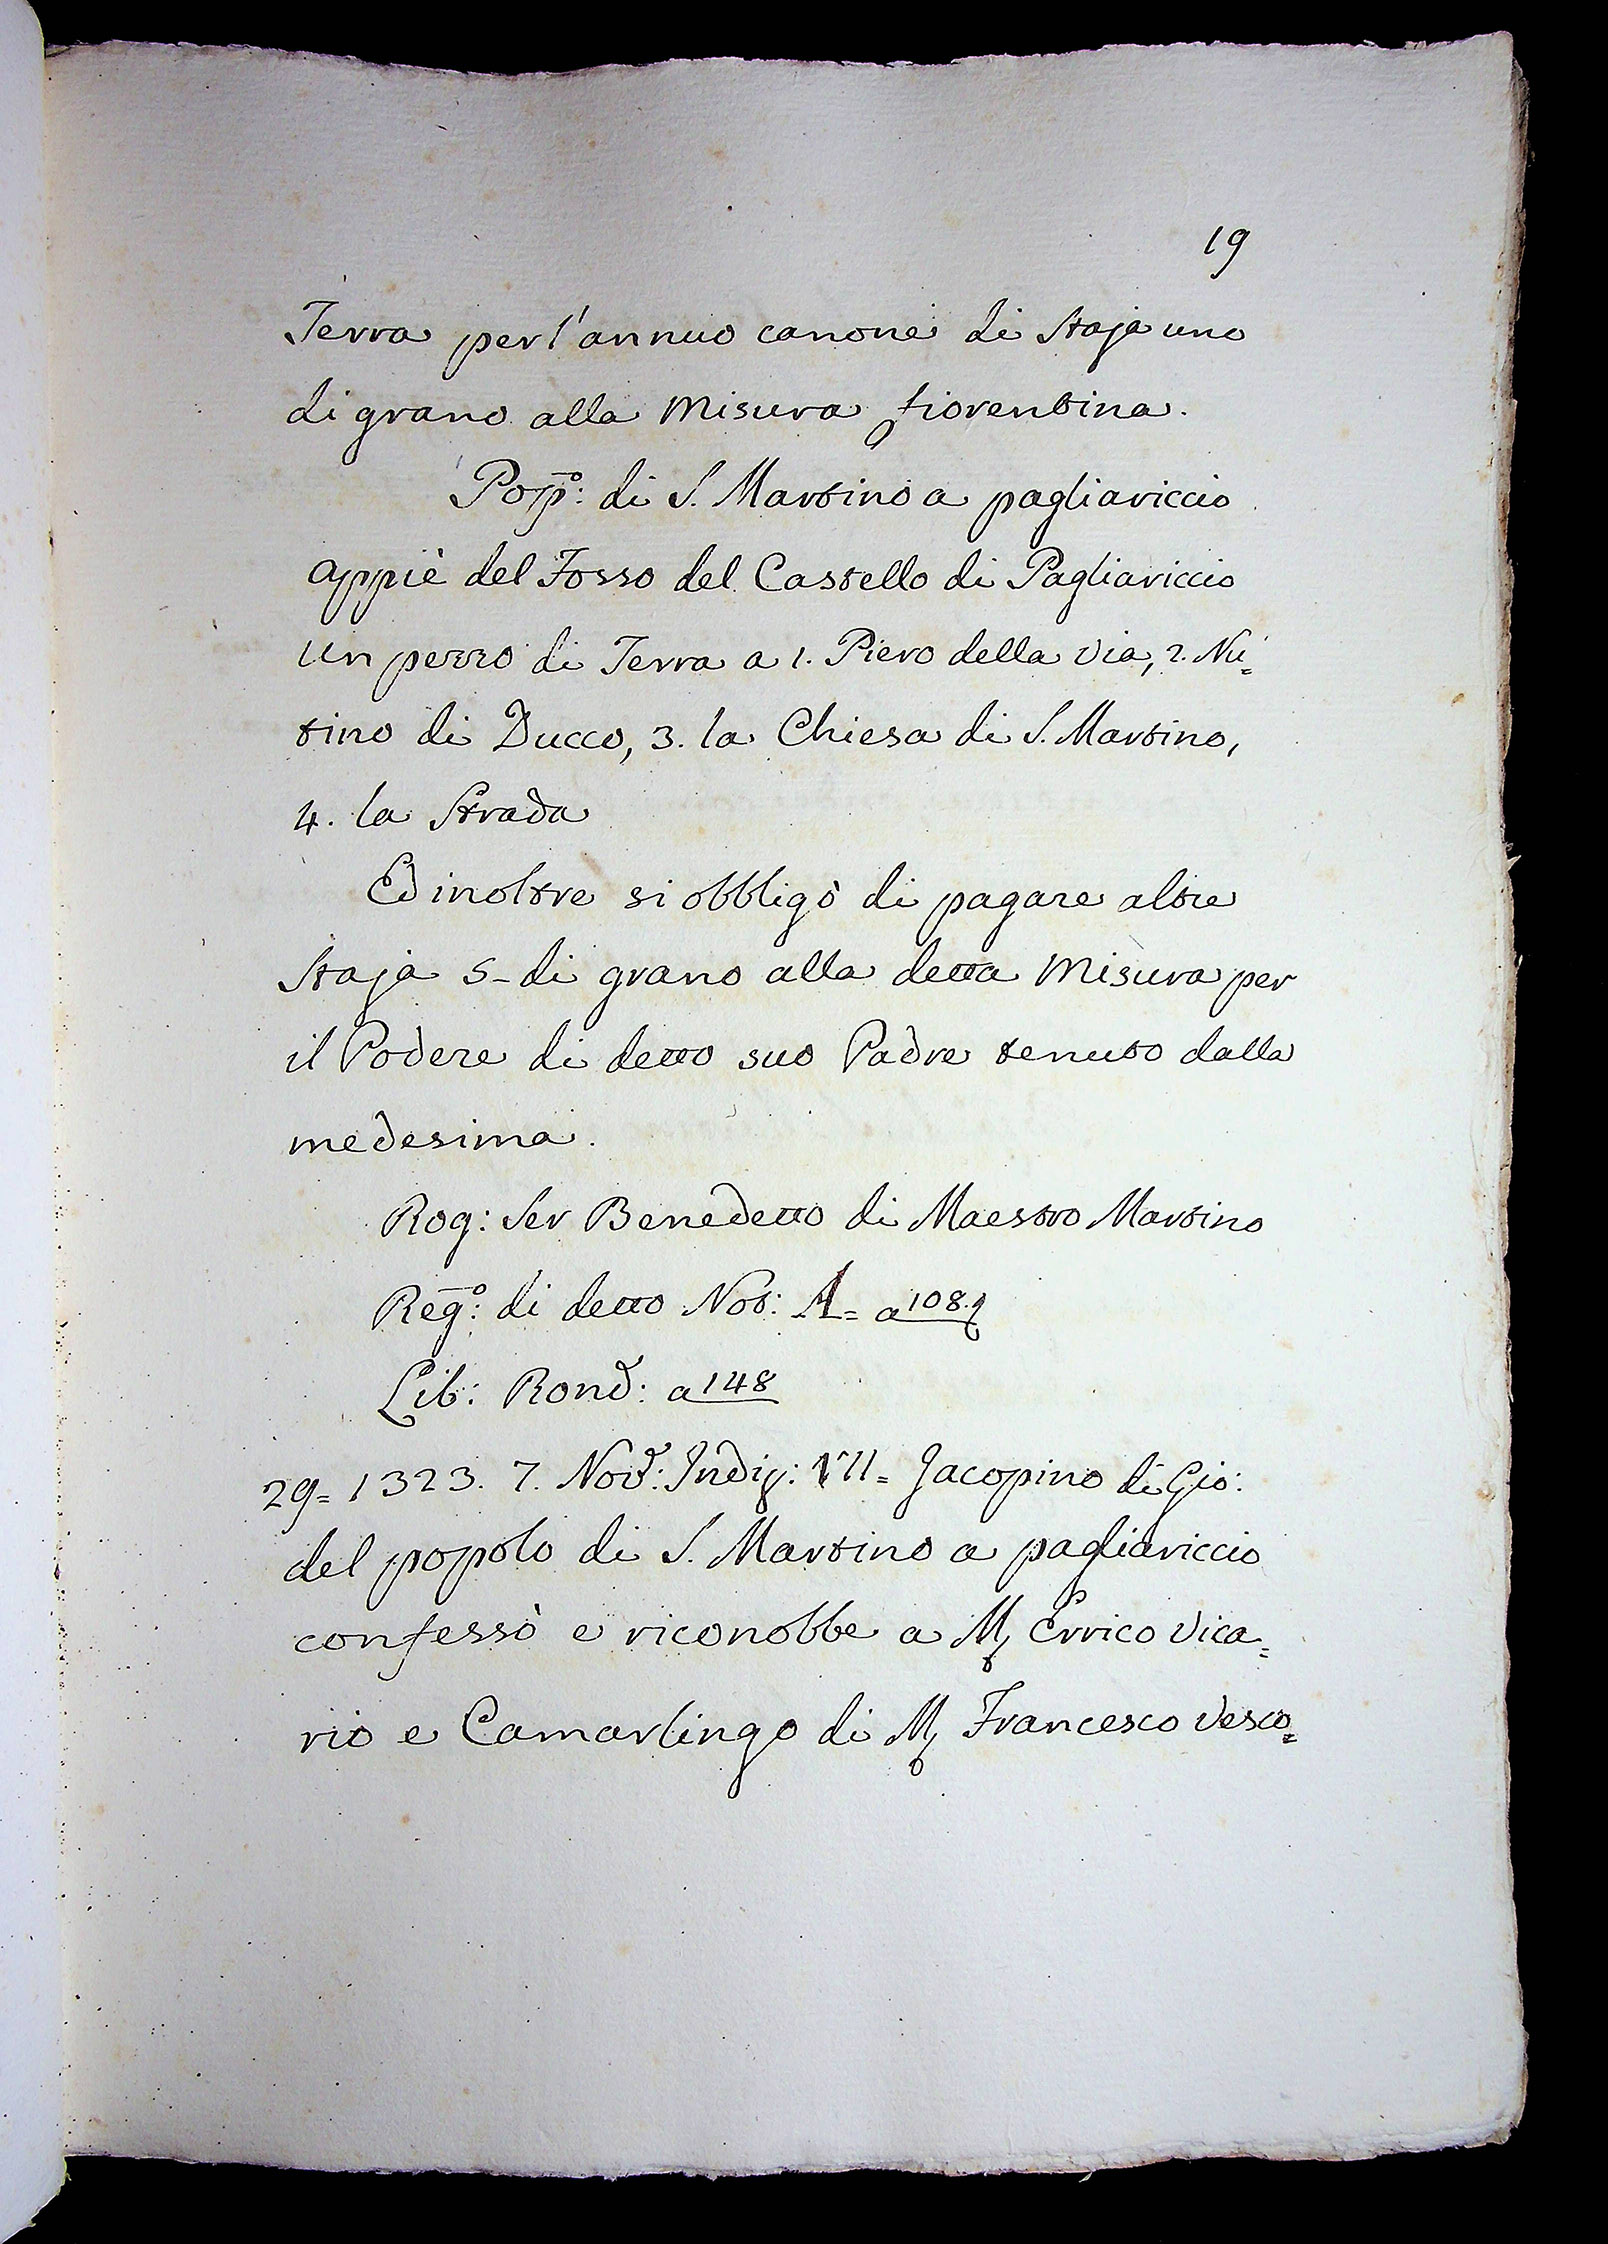 19
Terra per l'annuo canone di Staja uno
di grano alla Misura fiorentina.
Pop̄º: di S. Martino a pagliariccio
appiè del Fosso del Castello di Pagliariccio
un pezzo di Terra a 1. Piero della via, 2. Nu=
tino di Ducco, 3. la Chiesa di S. Martino,
4. la Strada
Ed inoltre si obbligò di pagare altre
Staja 5- di grano alla detta Misura per
il Podere di detto suo Padre tenuto dalla
medesima.
Rog: Ser Benedetto di Maestro Martino
Reḡº: di detto Not: A= a 108.
Lib: Rond: a 148
29= 1323. 7. Nov: Indiz: VII= Jacopino di Gio:
del popolo di S. Martino a pagliariccio
confessò e riconobbe a M Errico Vica=
rio e Camarlingo di M Francesco Vesco=